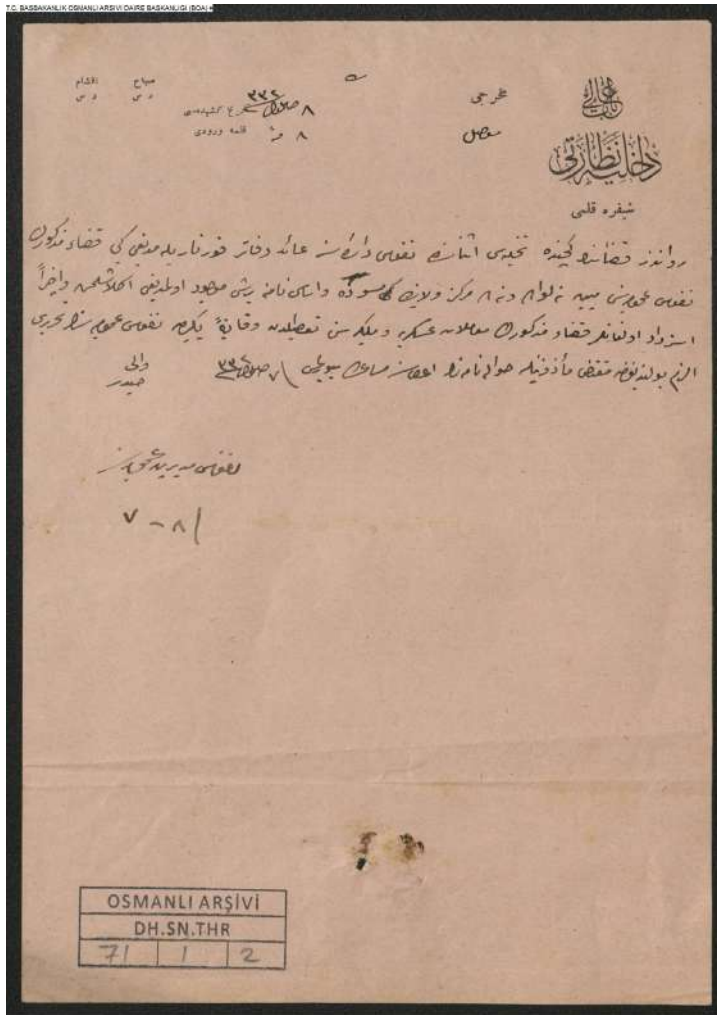 T.C. BAŞBAKANLIK OSMANLI ARŞİVİ DAİRE BAŞKANLIĞI (BOA)
باب عالی
داخلیه نظارتی
شیفره قلمی
مخرجی
موصل
صباح اقشام
د س د س
٨ ٣٣٢ كشیده‌سی
٨ قلمه ورودی
رواندز قضاسنك تخلیه‌سی اثناسنده نفوس دائره‌سنه عائد دفاتر قورتاریله‌مدیغی كبی قضاء مذكورك
نفوس عمومیه‌سنی مبین نه لواده ونه ده مركز ولایتده مسوده واساس نامنه برشی موجود اولمدیغی اكلاشلمش واخیراً
استرداد اولنان قضاء مذكورك معاملات عسكریه وملكیه‌سنی تعطیلدن وقایةً یكیدن نفوس عمومیه‌سنك تحریری
الزم بولندیغندن مقتضی مأذونیتله حواله‌نامه‌سنك اعطاسنه مساعده بیورلمسی ٧ ٣٣٢
والی
حیدر
نفوس مدیریت عمومیه‌سنه
٨ - ٧
OSMANLI ARŞİVİ
DH.SN.THR
71 1 2